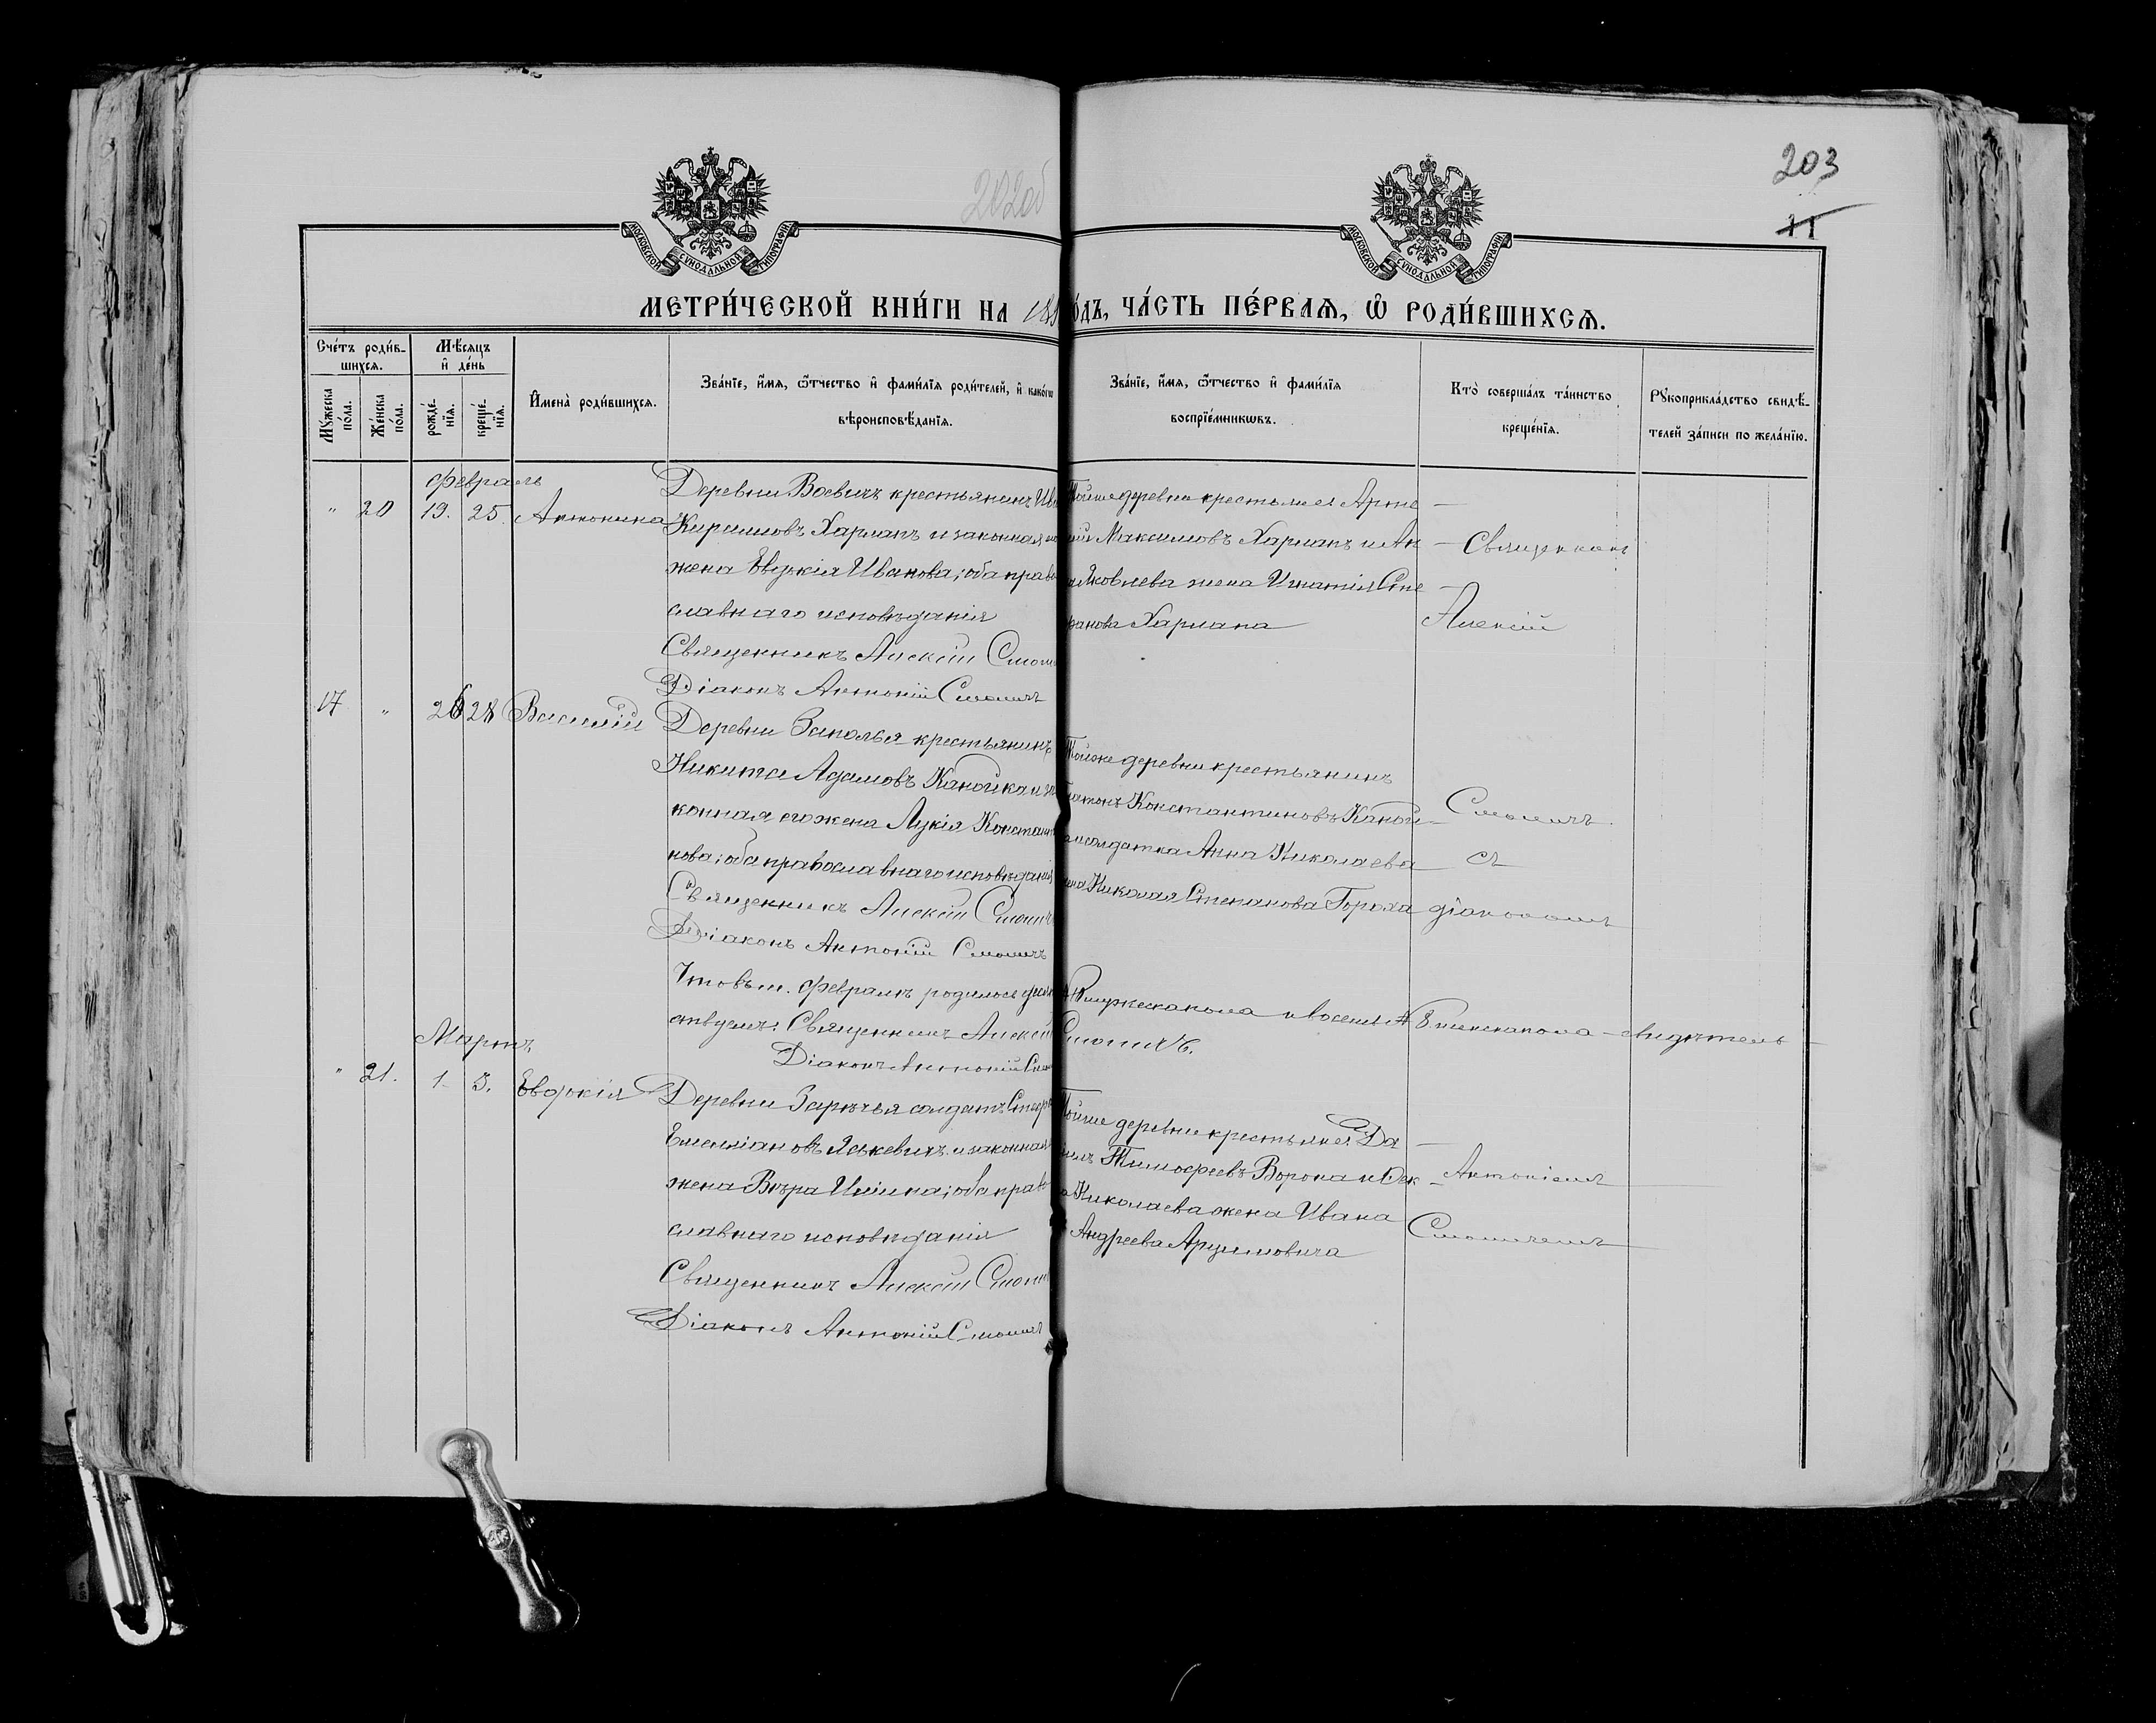 202об
203
11
МОСКОВСКОЙ СѴНОДАЛЬНОЙ ТИПОГРАФІИ
МОСКОВСКОЙ СѴНОДАЛЬНОЙ ТИПОГРАФІИ
МЕТРИ́ЧЕСКОЙ КНИ́ГИ НА 18 О́ДЪ, ЧА́СТЬ ПЕ́РВАѦ, Ѡ҆ РОДИ́ВШИХСѦ.
Сче́тъ роди́в-
шихсѧ.
Мѣ́сѧцъ
и҆ де́нь
Мꙋ́жеска по́ла.
Же́нска по́ла.
рожде́-нїѧ.
креще́-нїѧ.
И҆мена̀ роди́вшихсѧ.
Зва́нїе, и҆́мѧ, ѻ҆́тчество и҆ фами́лїѧ роди́телей, и҆ како́гѡ
вѣроисповѣ́данїѧ.
Зва́нїе, и҆́мѧ, ѻ҆́тчество и҆ фами́лїѧ
воспрїе́мникѡвъ.
Кто̀ соверша́лъ та́инство
креще́нїѧ.
Рꙋкоприкла́дство свидѣ́-
телей за́писи по жела́нїю.
Февраль
" 20 19. 25. Антонина
Деревни Воевичъ крестьянинъ Ив
Кириловъ Харланъ и законная
жена Евдокія Иванова; оба право
славнаго исповѣданія
Священникъ Алексій Смоли
Діаконъ Антоній Смоличъ
Тойже деревни крестьяне: Арте
ній Максимовъ Харланъ и Ан
Яковлева жена Игнатія Сте
фанова Харлана
Священник
Алексій
17 " 26 28 Василій
Деревни Заполья крестьянинъ
Никита Адамовъ Канойка и за
конная его жена Лукія Констант
нова; оба православнаго исповѣданія
Священникъ Алексій Смолич
Діаконъ Антоній Смоличъ
Тойже деревни крестьянинъ
латонъ Константиновъ Каной
а и солдатка Анна Николаева
ена Николая Степанова Гороха
Смоличъ
съ
діакономъ
Что въ м. Февралѣ родилось
мужеска пола и восемь 8 женска пола - свидѣтель
ствуемъ: Священникъ Алексій Смоличъ.
Діаконъ Антоній См
Мартъ
" 21. 1. 3. Евдокія
Деревни Зарѣчья солдатъ Стефа
Емельяновъ Яськевичъ и законная
жена Вѣра Ильина; оба право
славнаго исповѣданія
Священникъ Алексій Смоли
Діаконъ Антоній Смоличъ
Тойже деревни крестьяне: Да
іилъ Тимофеевъ Ворона и Фек
а Николаева жена Ивана
Андреева Арцимовича
Антоніемъ
Смоличемъ